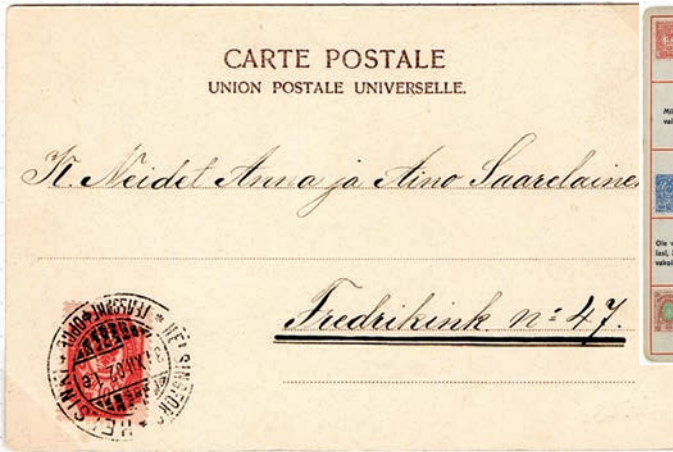 CARTE POSTALE
UNION POSTALE UNIVERSELLE.
N. Neidet Anna ja Aino Saarelainen
Fredrikink. nº 47.
HELSINKI * HELSINGFORS *
31 XII 02
Ole v